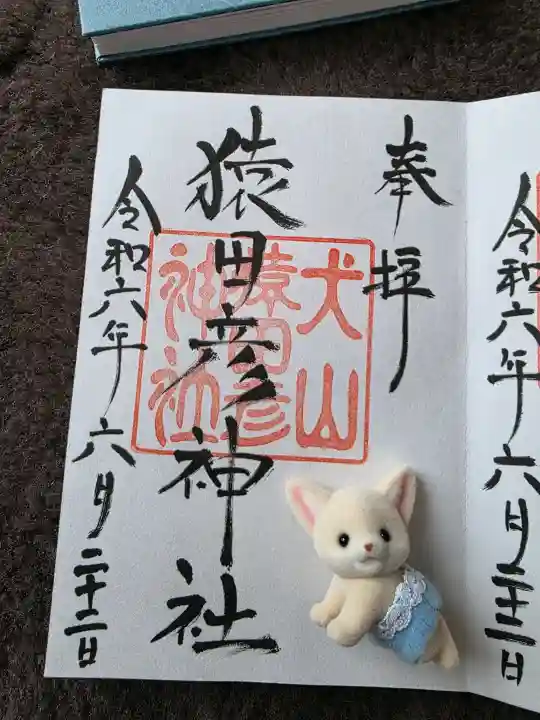 奉拝
犬山
猿田彦
神社
猿田彦神社
令和六年 六月二十二日
令和六年 六月二十二日